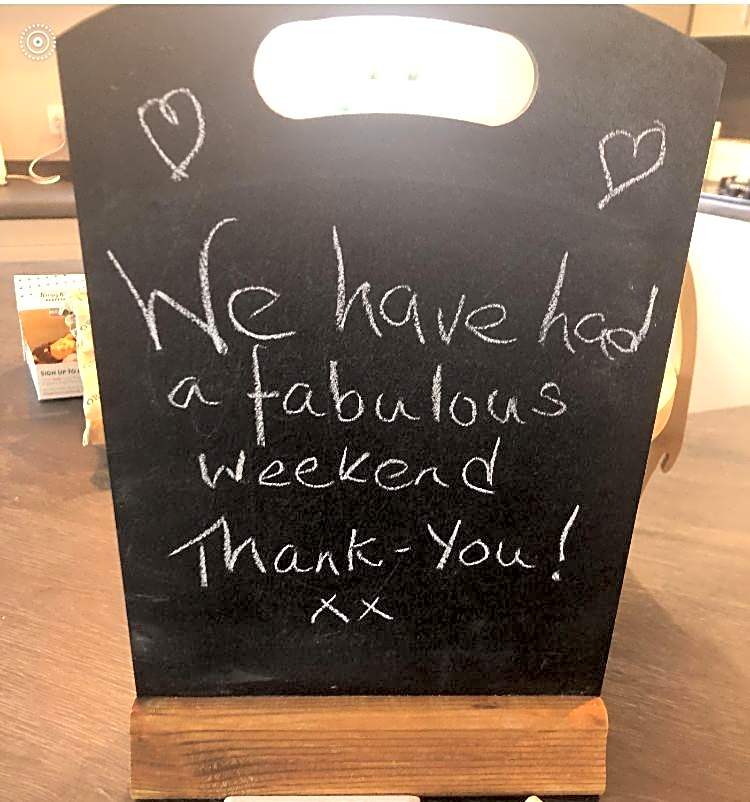 We have had
a fabulous
weekend
Thank-You!
xx
SIGN UP TO